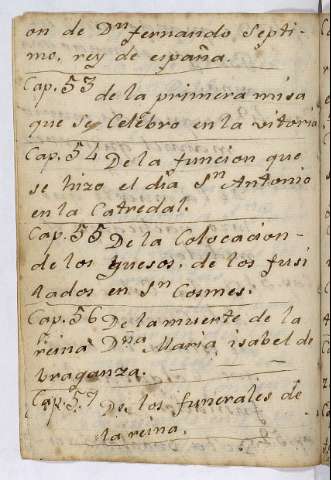 on de Dn fernando Septi-
mo, rey de españa.
Cap. 53 de la primera misa
que se Celebro en la vitoria
Cap. 54 De la funcion que
se hizo el dia Sn Antonio
en la Catredal.
Cap. 55 De la Colocacion-
de los guesos, de los fusi
lados en Sn Cosmes.
Cap. 56 De la muerte de la
reina Dña Maria isabel de
braganza.
Cap. 57 De los funerales de
la reina.